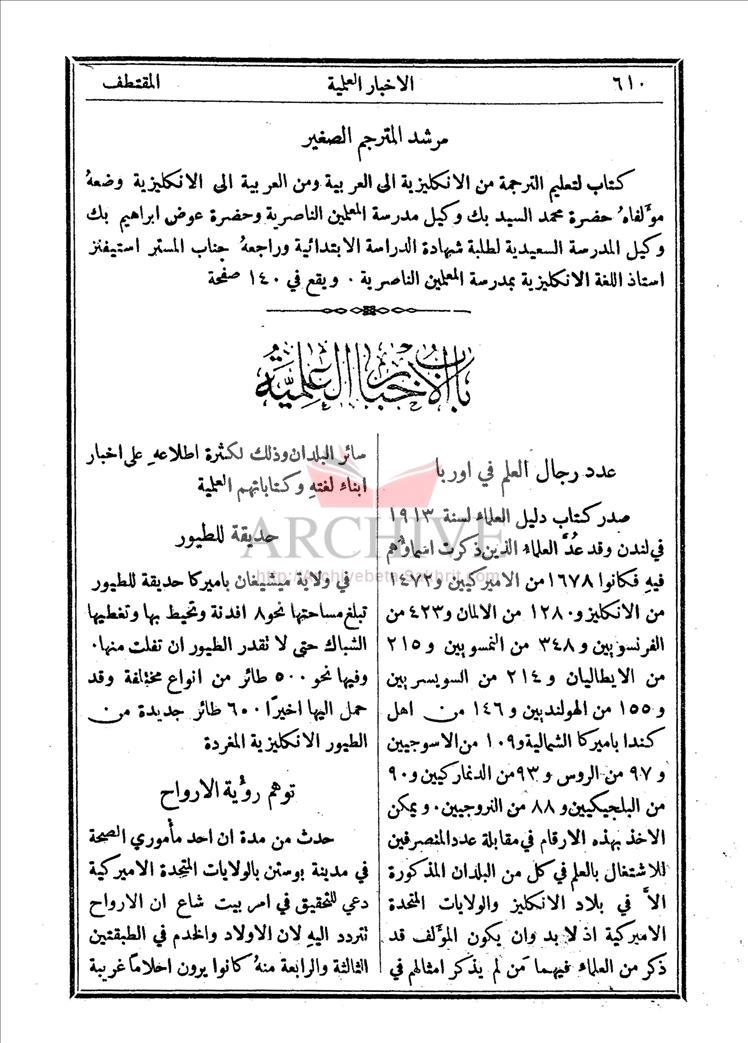 ٦١٠ الاخبار العلمية المقتطف
مرشد المترجم الصغير
كتاب لتعليم الترجمة من الانكليزية الى العربية ومن العربية الى الانكليزية وضعهُ
مؤلفاهُ حضرة محمد السيد بك وكيل مدرسة المعلمين الناصرية وحضرة عوض ابراهيم بك
وكيل المدرسة السعيدية لطلبة شهادة الدراسة الابتدائية وراجعهُ جناب المستر استيفنز
استاذ اللغة الانكليزية بمدرسة المعلمين الناصرية . ويقع في ١٤٠ صفحة
باب الاخبار العلمية
عدد رجال العلم في اوربا
صدر كتاب دليل العلماء لسنة ١٩١٣
في لندن وقد عُدَّ العلماء الذين ذكرت اسماؤهم
فيهِ فكانوا ١٦٧٨ من الاميركيين و١٤٧٢
من الانكليز و١٢٨٠ من الالمان و٤٢٣ من
الفرنسويين و ٣٤٨ من النمسويين و ٢١٥
من الايطاليان و ٢١٤ من السويسريين
و ١٥٥ من الهولنديين و ١٤٦ من اهل
كندا باميركا الشمالية و١٠٩ من الاسوجيين
و ٩٧ من الروس و ٩٣ من الدنماركيين و ٩٠
من البلجيكيين و ٨٨ من النروجيين . ويمكن
الاخذ بهذه الارقام في مقابلة عدد المنصرفين
للاشتغال بالعلم في كل من البلدان المذكورة
الاَّ في بلاد الانكليز والولايات المتحدة
الاميركية اذ لا بد وان يكون المؤلف قد
ذكر من العلماء فيهما مَن لم يذكر امثالهم في
سائر البلدان وذلك لكثرة اطلاعهِ على اخبار
ابناء لغتهِ وكتاباتهم العلمية
حديقة للطيور
في ولاية ميشيغان باميركا حديقة للطيور
تبلغ مساحتها نحو ٨ افدنة وتحيط بها وتغطيها
الشباك حتى لا تقدر الطيور ان تفلت منها .
وفيها نحو ٥٠٠ طائر من انواع مختلفة وقد
حمل اليها اخيرًا ٦٠٠ طائر جديدة من
الطيور الانكليزية المغردة
توهم رؤية الارواح
حدث من مدة ان احد مأموري الصحة
في مدينة بوستن بالولايات المتحدة الاميركية
دعي للتحقيق في امر بيت شاع ان الارواح
تتردد اليهِ لان الاولاد والخدم في الطبقتين
الثالثة والرابعة منهُ كانوا يرون احلامًا غريبة
ARCHIVE
http://Archivebeta.Sakhrit.com